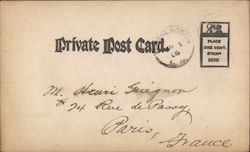 Private Post Card.
PLACE
ONE CENT
STAMP
HERE
M. Henri Guignon
74 Rue de Passy
Paris,
France